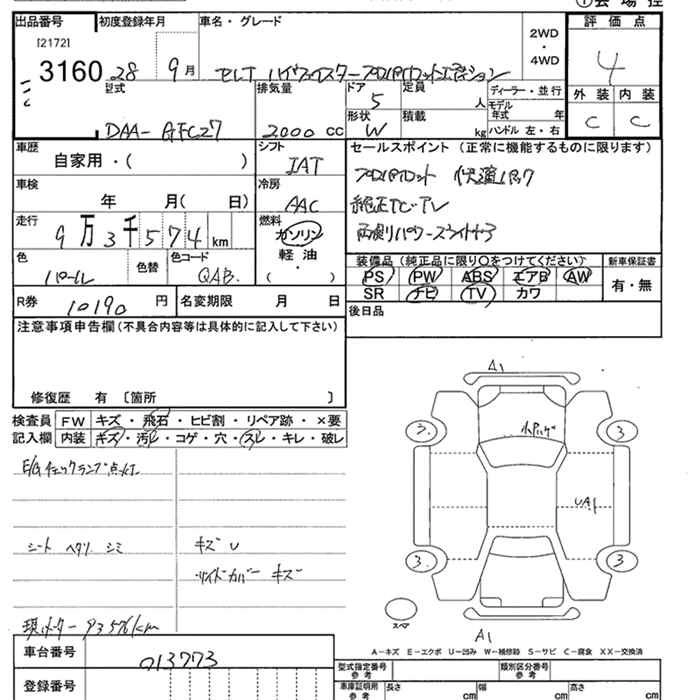 ①会場控
出品番号
[2172]
3160
初度登録年月
28 9月
車名・グレード
セレナ ハイウェイスター プロパイロットエディション
2WD
・
4WD
評価点
4
外装 内装
C C
型式
DAA-GFC27
排気量
2000 cc
ドア
5
定員
人
形状
W
積載
kg
ディーラー・並行
モデル
年式 年
ハンドル 左・右
車歴
自家用・( )
シフト
IAT
セールスポイント (正常に機能するものに限ります)
プロパイロット 快適パック
純正TC-TV
両側パワースライドドア
車検
年 月( 日)
冷房
AAC
走行
9万3千574km
燃料
ガソリン
軽油
( ・ )
色
パール
色替
色コード
QAB
装備品 (純正品に限り○をつけてください)
PS PW ABS エアB AW
SR ナビ TV カワ
新車保証書
有・無
R券
10190 円
名変期限 月 日
後日品
注意事項申告欄(不具合内容等は具体的に記入して下さい)
修復歴 有 〔箇所 〕
検査員
記入欄
FW キズ・飛石・ヒビ割・リペア跡・×要
内装 キズ・汚レ・コゲ・穴・スレ・キレ・破レ
E/Gチェックランプ点灯
シート ヘタリ シミ
キズ U
サイドカバー キズ
現メーター 93576km
A1
3 3
UA1
3 3
スペア
A1
A-キズ E-エクボ U-凹み W-補修跡 S-サビ C-腐食 XX-交換済
車台番号
013773
登録番号
型式指定番号
参考
類別区分番号
参考
車庫証明用
参考
長さ cm 幅 cm 高さ cm